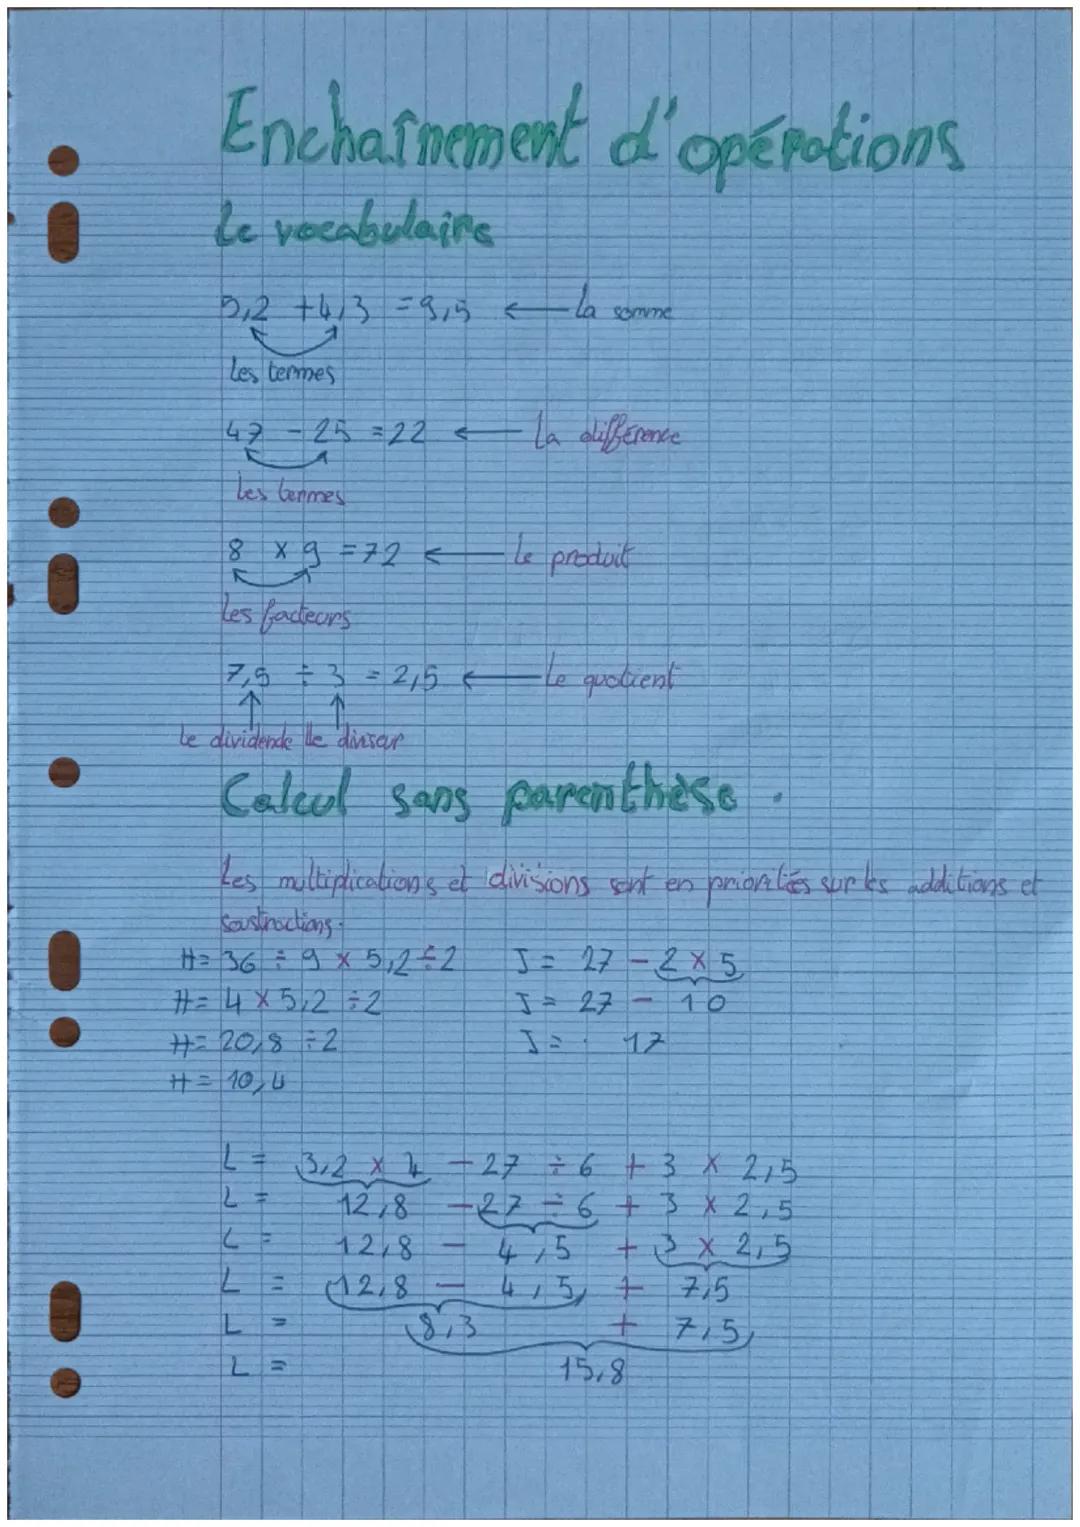 Enchaînement d'opérations
Le vocabulaire
5,2 + 4,3 = 9,5 ← La somme
Les termes
47 - 25 = 22 ← La différence
Les termes
8 × 9 = 72 ← Le produit
Les facteurs
7,5 ÷ 3 = 2,5 ← Le quotient
Le dividende Le diviseur
Calcul sans parenthèse.
Les multiplications et divisions sont en priorités sur les additions et
soustractions.
H = 36 ÷ 9 × 5,2 ÷ 2 J = 27 - 2 × 5
H = 4 × 5,2 ÷ 2 J = 27 - 10
H = 20,8 ÷ 2 J = 17
H = 10,4
L = 3,2 × 4 - 27 ÷ 6 + 3 × 2,5
L = 12,8 - 27 ÷ 6 + 3 × 2,5
L = 12,8 - 4,5 + 3 × 2,5
L = 12,8 - 4,5 + 7,5
L = 8,3 + 7,5
L = 15,8